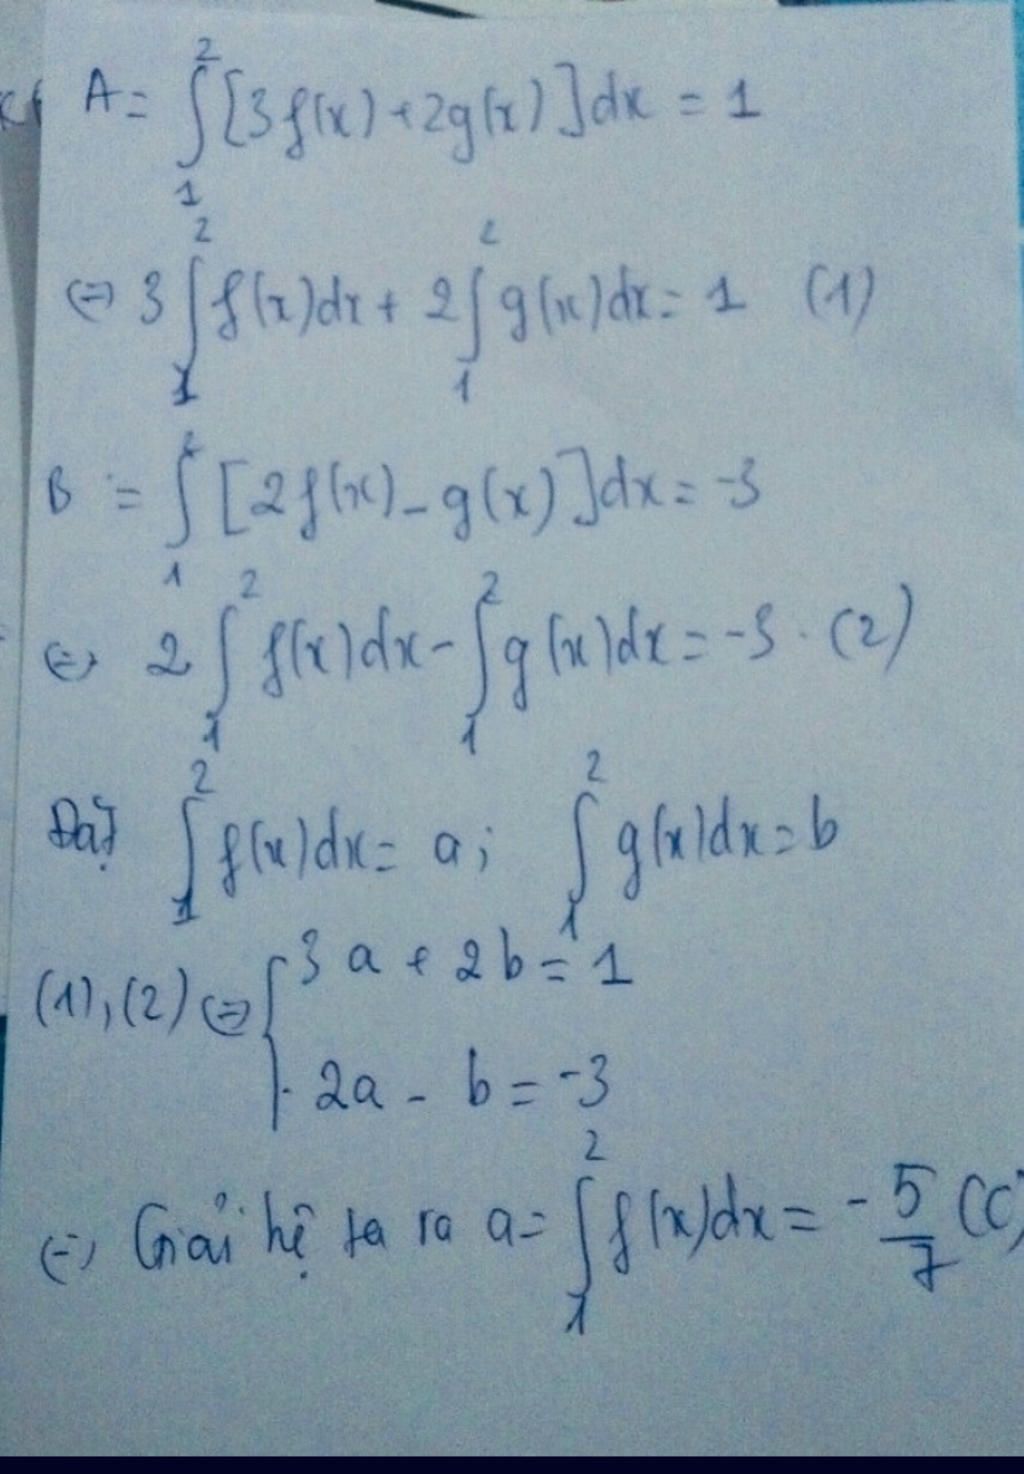 A = ∫₁² [3f(x) + 2g(x)]dx = 1
⇔ 3∫₁² f(x)dx + 2∫₁² g(x)dx = 1 (1)
B = ∫₁² [2f(x) - g(x)]dx = -3
⇔ 2∫₁² f(x)dx - ∫₁² g(x)dx = -3. (2)
Đặt ∫₁² f(x)dx = a; ∫₁² g(x)dx = b
(1), (2) ⇔ { 3a + 2b = 1
2a - b = -3
⇔ Giải hệ ta ra a = ∫₁² f(x)dx = -5/7 (C)